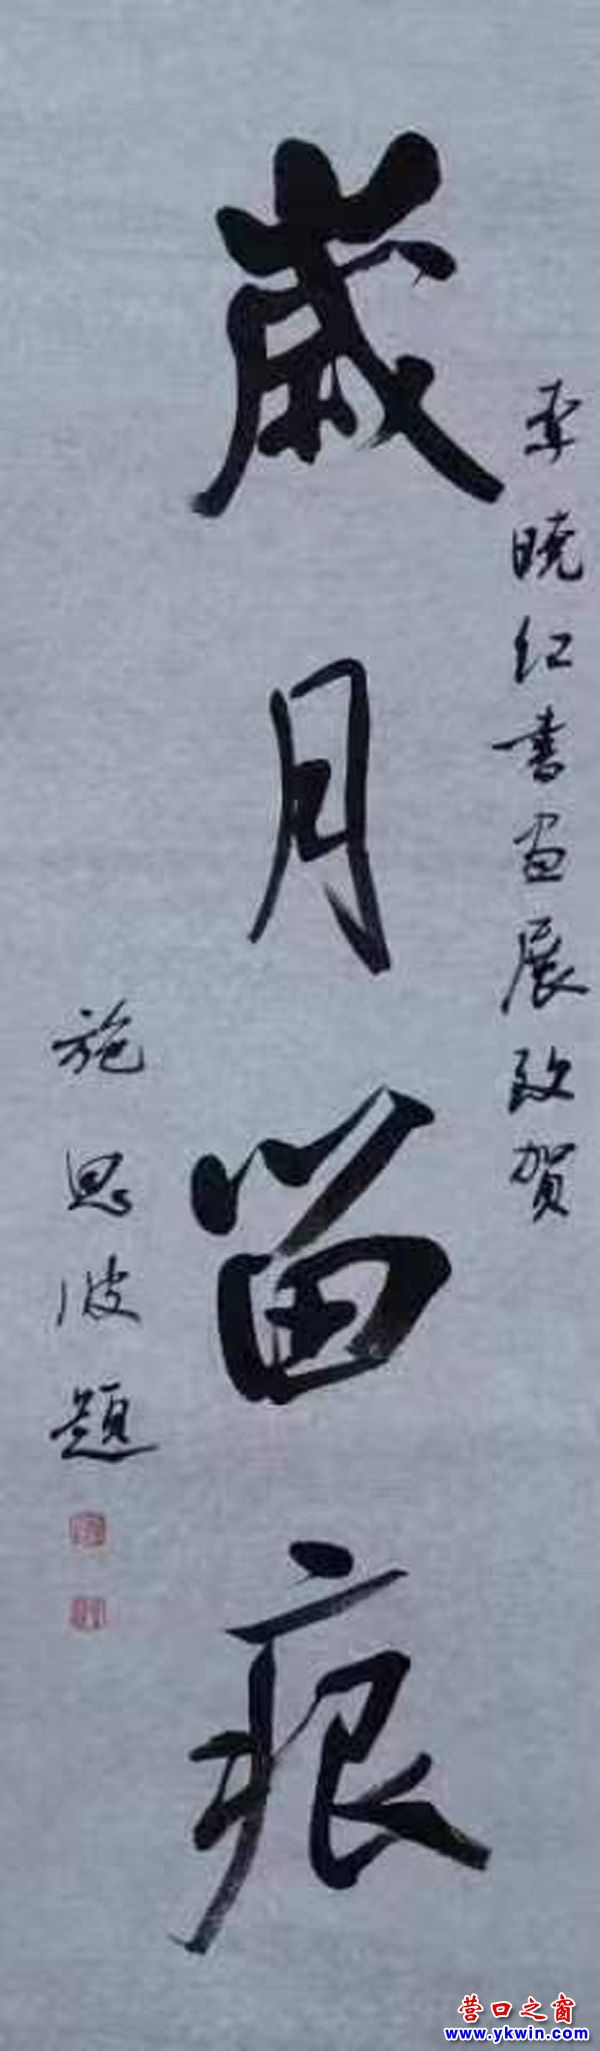 李晓红书画展致贺
歲月留痕
施思波题
营口之窗
www.ykwin.com